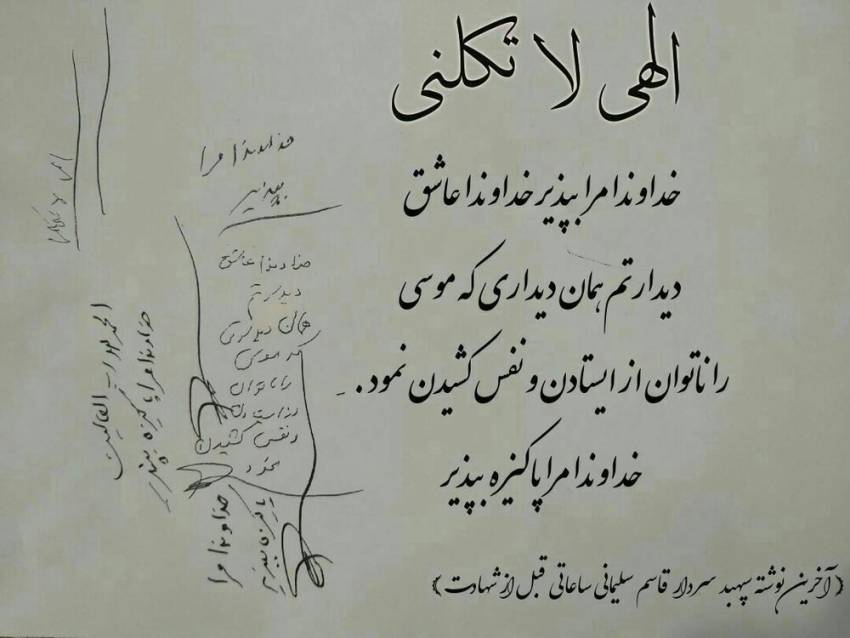 الهی لا تکلنی
خداوندا مرا بپذیر خداوندا عاشق
دیدارتم همان دیداری که موسی
را ناتوان از ایستادن و نفس کشیدن نمود.
خداوندا مرا پاکیزه بپذیر
(آخرین نوشته سپهبد سردار قاسم سلیمانی ساعاتی قبل از شهادت)
خداوندا مرا
بپذیر
خداوندا عاشق
دیدارتم
همان دیداری
که موسی
را ناتوان
از ایستادن
و نفس کشیدن
نمود
خداوندا مرا
پاکیزه بپذیر
الحمدلله رب العالمین
خداوندا مرا پاکیزه بپذیر
الهی لا تکلنی